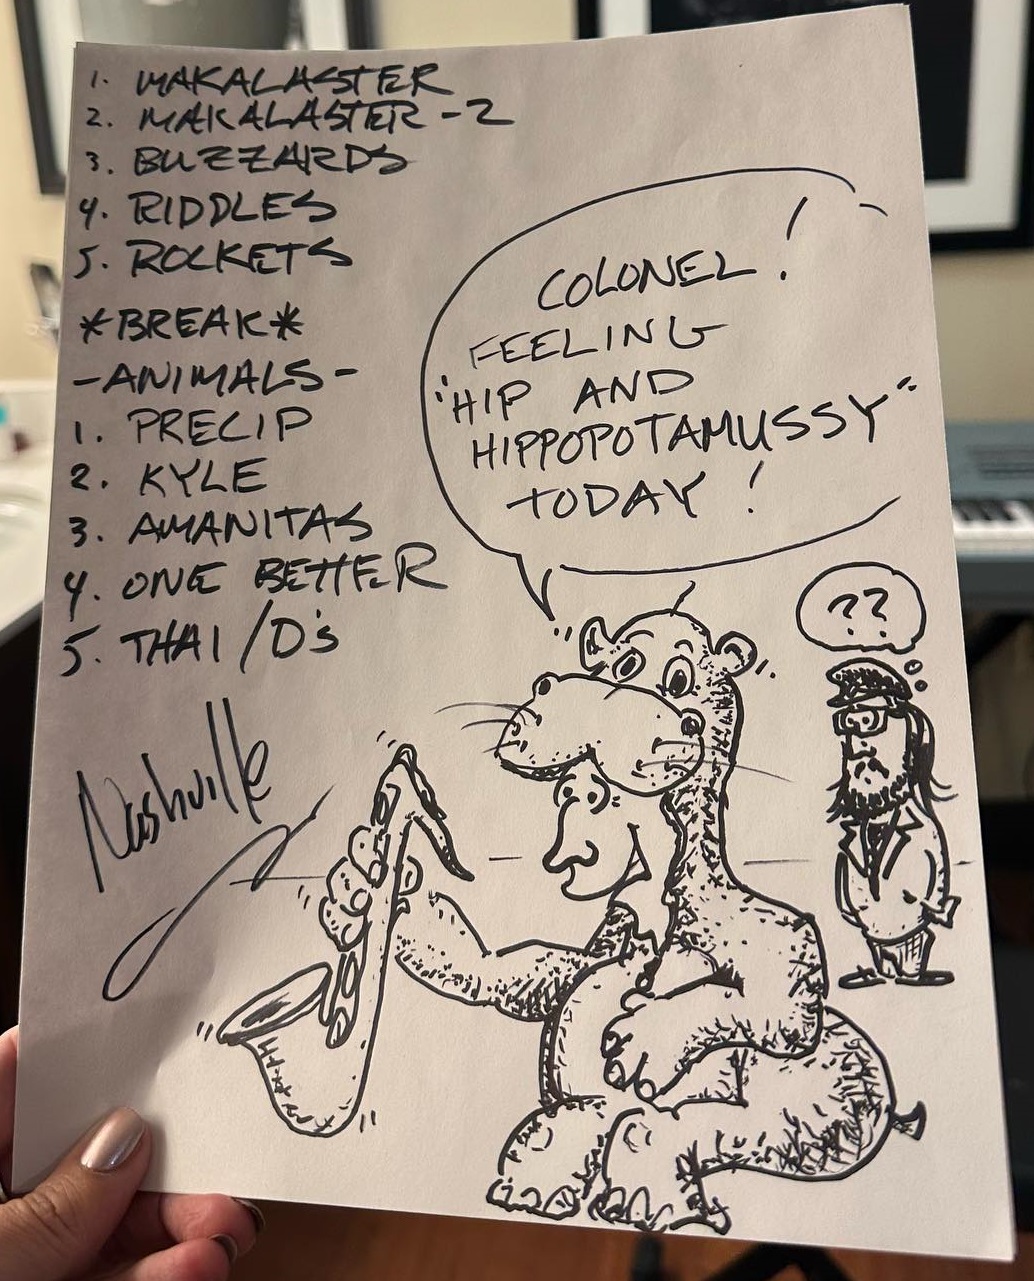 1. MAKALASTER
2. MAKALASTER - 2
3. BUZZARDS
4. RIDDLES
5. ROCKETS
*BREAK*
-ANIMALS-
1. PRECIP
2. KYLE
3. AMANITAS
4. ONE BETTER
5. THAI/D's
Nashville
COLONEL!
FEELING
"HIP AND
HIPPOPOTAMUSSY"
TODAY!
??